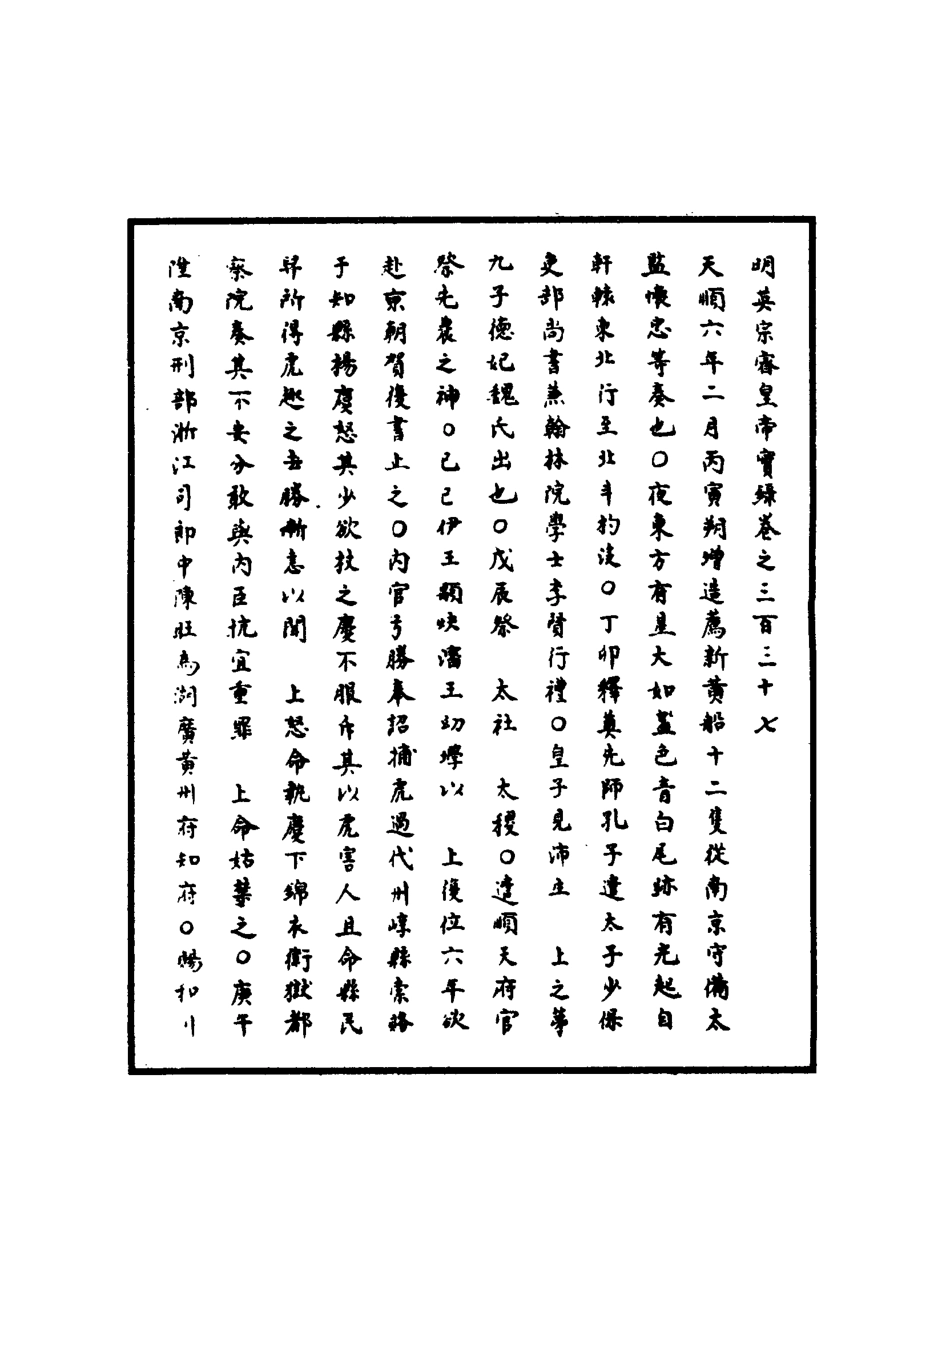 明英宗睿皇帝實錄卷之三百三十七
天順六年二月丙寅朔增造薦新黃船十二隻從南京守備太
監懷忠等奏也○夜東方有星大如盞色青白尾跡有光起自
軒轅東北行至北斗杓沒○丁卯釋奠先師孔子遣太子少保
吏部尚書兼翰林院學士李賢行禮○皇子見沛生 上之第
九子德妃魏氏出也○戊辰祭 太社 太稷○遣順天府官
祭先農之神○己巳伊王顒炔瀋王幼㙾以 上復位六年欲
赴京朝賀復書止之○內官弓勝奉詔捕虎過代州崞縣索賂
于知縣楊慶怒其少欲杖之慶不服斥其以虎害人且命縣民
舁所得虎趣之去勝慚恚以聞 上怒命執慶下錦衣衛獄都
察院奏其不安分敢與內臣抗宜重罪 上命姑禁之○庚午
陞南京刑部浙江司郎中陳旺為湖廣黃州府知府○賜和川